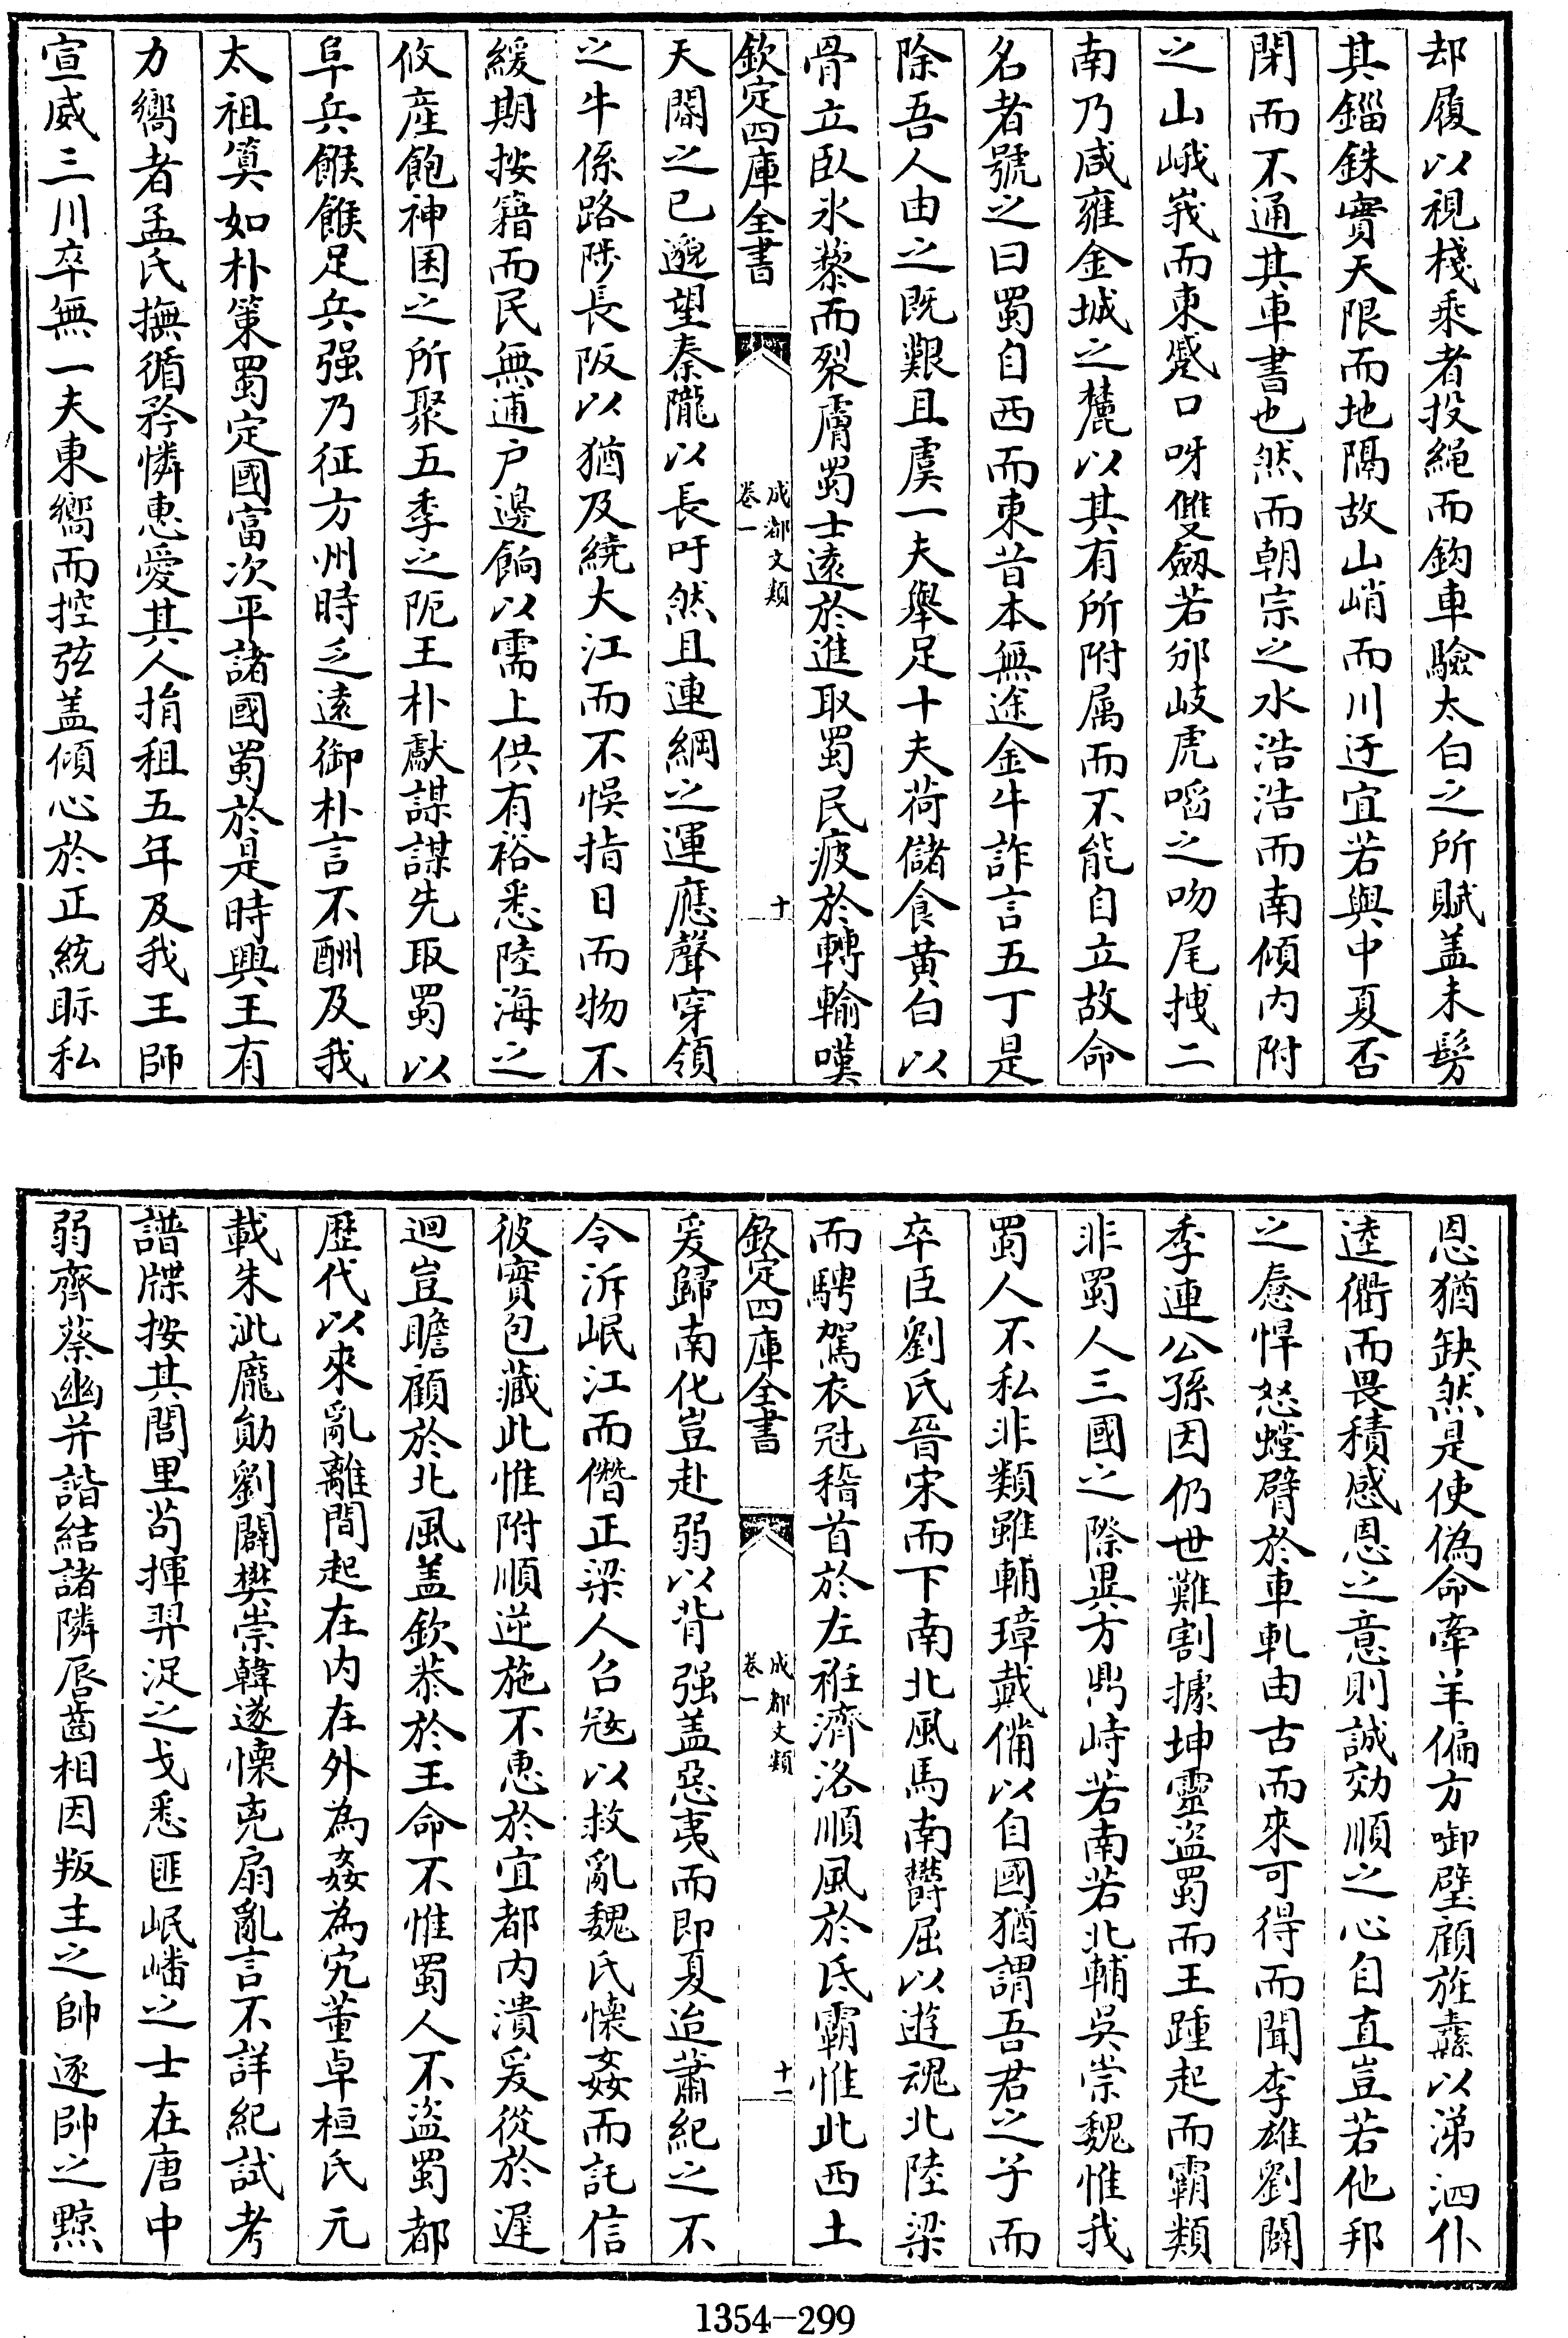 却履以視棧乘者投繩而鈎車驗太白之所賦盖未髣
其錙銖實天限而地隔故山峭而川迂宜若與中夏否
閉而不通其車書也然而朝宗之水浩浩而南傾内附
之山峨峩而東蹙口呀雙劔若邠岐虎㗖之吻尾拽二
南乃咸雍金城之麓以其有所附属而不能自立故命
名者號之曰蜀自西而東昔本無途金牛詐言五丁是
除吾人由之既艱且虞一夫舉足十夫荷儲食黄白以
骨立臥氷藜而裂膚蜀士遠於進取蜀民疲於轉輸嘆
欽定四庫全書
成都文類
卷一
十
天閽之已邈望秦隴以長吁然且連綱之運應聲穿領
之牛係路陟長阪以猶及繞大江而不悞指日而物不
緩期按籍而民無逋户邊餉以需上供有裕悉陸海之
攸産飽神困之所聚五季之阨王朴獻謀謀先取蜀以
阜兵餱餱足兵强乃征方州時乏遠御朴言不酬及我
太祖筭如朴策蜀定國富次平諸國蜀於是時興王有
力嚮者孟氏撫循矜憐惠愛其人捐租五年及我王師
宣威三川卒無一夫東嚮而控弦盖傾心於正統眎私
恩猶缺然是使偽命牽羊偏方啣璧顧旌纛以涕泗仆
逵衢而畏積感恩之意則誠効順之心自直豈若他邦
之憃悍怒螳臂於車軋由古而來可得而聞李雄劉闢
季連公孫因仍世難割據坤靈盗蜀而王踵起而霸類
非蜀人三國之際異方鼎峙若南若北輔吳崇魏惟我
蜀人不私非類雖輔璋戴備以自國猶謂吾君之子而
卒臣劉氏晉宋而下南北風馬南欝屈以遊魂北陸梁
而騁駕衣冠稽首於左袵濟洛順風於氐霸惟此西土
欽定四庫全書
成都文類
卷一
十一
爰歸南化豈赴弱以背强盖惡夷而即夏迨蕭紀之不
令泝岷江而僭正梁人召㓂以救亂魏氏懷姦而託信
彼實包藏此惟附順逆施不惠於宜都内潰爰從於遲
迴豈瞻顧於北風盖欽恭於王命不惟蜀人不盗蜀都
歴代以來亂離間起在内在外為姦為宄董卓桓氏元
載朱泚龐勛劉闢樊崇韓遂懷兇扇亂言不詳紀試考
譜牒按其閭里苟揮羿浞之戈悉匪岷嶓之士在唐中
弱齊蔡幽并諧結諸隣唇齒相因叛主之帥逐帥之黥
1354-299